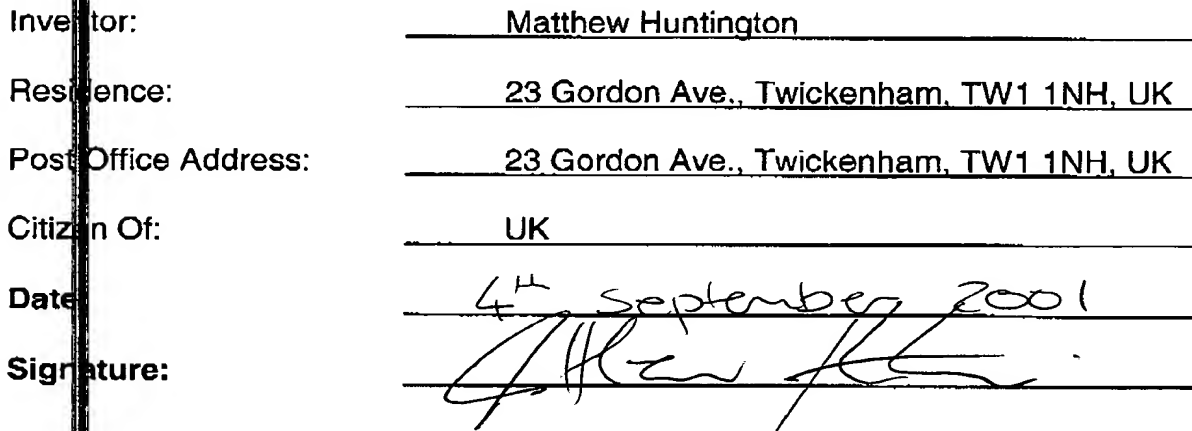 Inventor: Matthew Huntington
Residence: 23 Gordon Ave., Twickenham, TW1 1NH, UK
Post Office Address: 23 Gordon Ave., Twickenham, TW1 1NH, UK
Citizen Of: UK
Date: 4th September 2001
Signature: